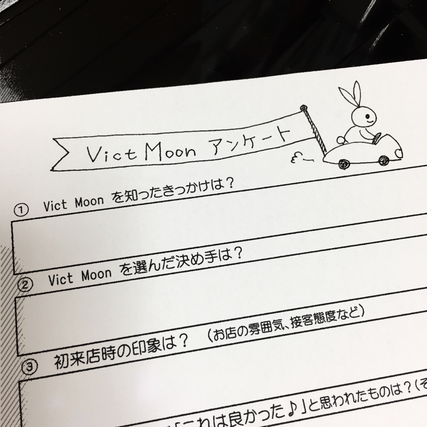 Vict Moon アンケート
① Vict Moon を知ったきっかけは？
② Vict Moon を選んだ決め手は？
③ 初来店時の印象は？ （お店の雰囲気、接客態度など）
「これは良かった♪」と思われたものは？（そ